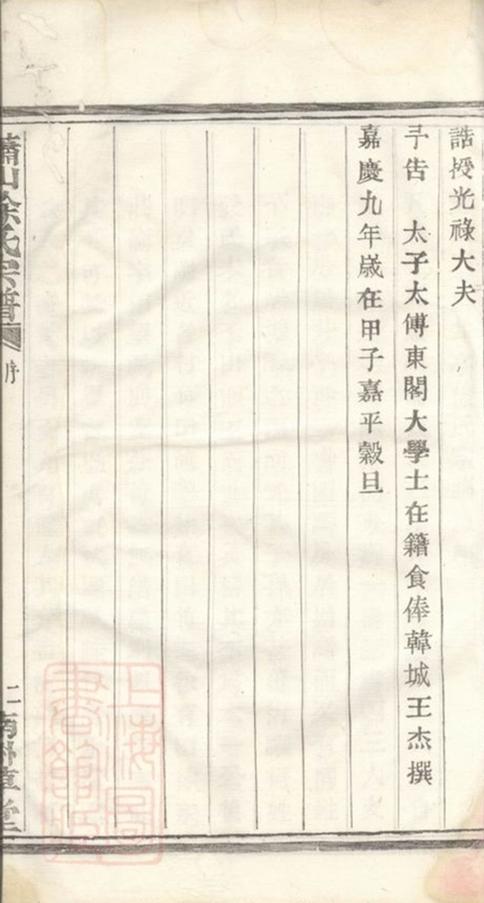 誥授光祿大夫
予告　太子太傅東閣大學士在籍食俸韓城王杰撰
嘉慶九年歲在甲子嘉平穀旦
蕭山徐氏宗譜　序
二
上海圖書館藏